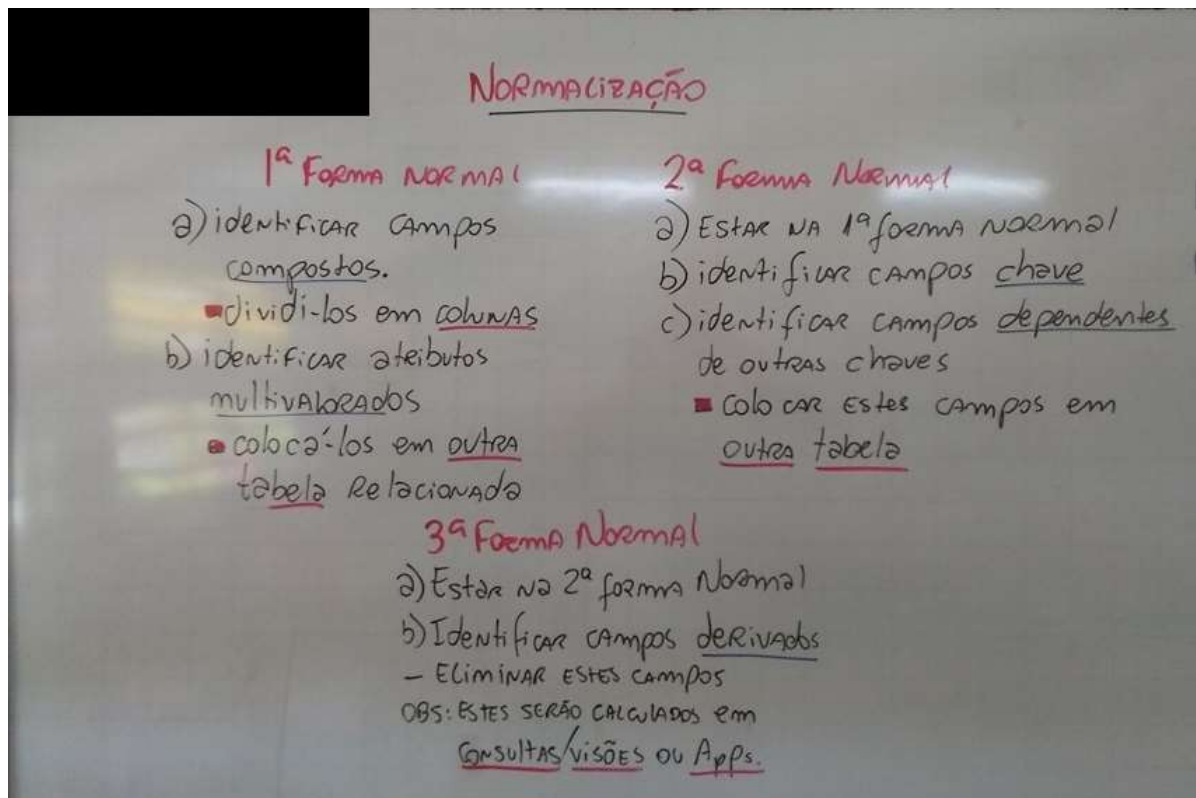 NORMALIZAÇÃO
1ª FORMA NORMAL
a) identificar campos
compostos.
dividi-los em colunas
b) identificar atributos
multivalorados
colocá-los em outra
tabela relacionada
2ª Forma Normal
a) Estar na 1ª forma normal
b) identificar campos chave
c) identificar campos dependentes
de outras chaves
colocar estes campos em
outra tabela
3ª Forma Normal
a) Estar na 2ª forma Normal
b) Identificar campos derivados
- Eliminar estes campos
OBS: ESTES SERÃO CALCULADOS em
Consultas/visões ou Apps.